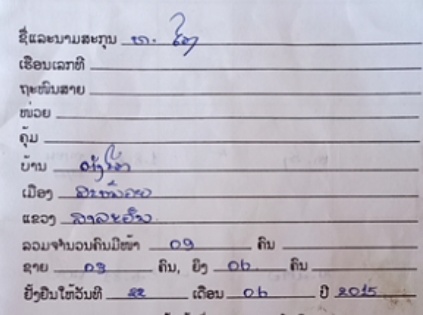 ຊື່ແລະນາມສະກຸນ ທ. ໃສ
ເຮືອນເລກທີ
ຖະໜົນສາຍ
ໜ່ວຍ
ຄຸ້ມ
ບ້ານ
ເມືອງ
ແຂວງ ສາລະວັນ
ລວມຈຳນວນຄົນມີໜ້າ 09 ຄົນ
ຊາຍ 03 ຄົນ, ຍິງ 06 ຄົນ
ຢັ້ງຢືນໃຫ້ວັນທີ 22 ເດືອນ 06 ປີ 2015